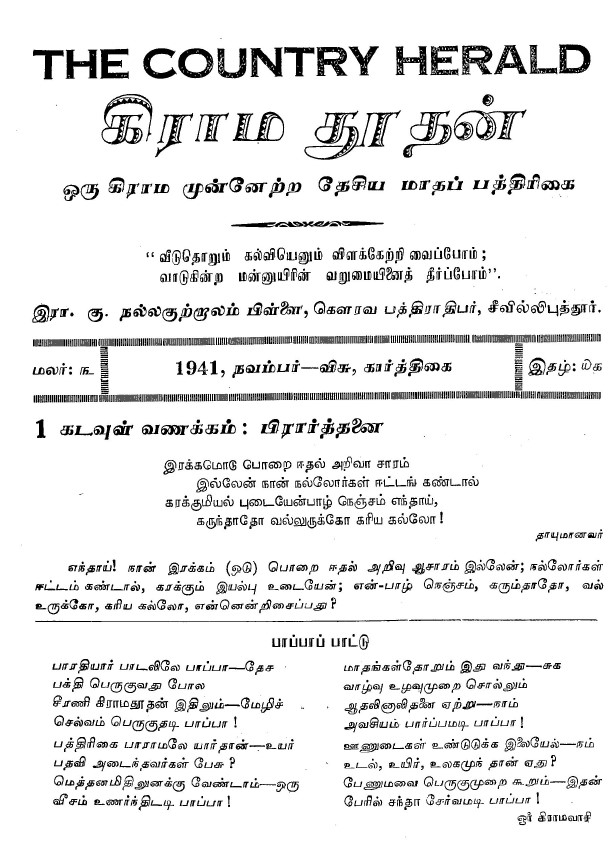 THE COUNTRY HERALD
கிராம தூதன்
ஒரு கிராம முன்னேற்ற தேசிய மாதப் பத்திரிகை
“வீடுதொறும் கல்வியெனும் விளக்கேற்றி வைப்போம் ;
வாடுகின்ற மன்னுயிரின் வறுமையினைத் தீர்ப்போம்”.
இரா. கு. நல்லகுற்றாலம் பிள்ளை, கௌரவ பத்திராதிபர், சீவில்லிபுத்தூர்.
மலர்: ௩ 1941, நவம்பர்—விசு, கார்த்திகை இதழ்: ௰௧
1 கடவுள் வணக்கம் : பிரார்த்தனை
இரக்கமொடு பொறை ஈதல் அறிவா சாரம்
இல்லேன் நான் நல்லோர்கள் ஈட்டங் கண்டால்
கரக்குமியல் புடையேன்பாழ் நெஞ்சம் எந்தாய்,
கருந்தாதோ வல்லுருக்கோ கரிய கல்லோ !
தாயுமானவர்
எந்தாய்! நான் இரக்கம் (ஒடு) பொறை ஈதல் அறிவு ஆசாரம் இல்லேன்; நல்லோர்கள்
ஈட்டம் கண்டால், கரக்கும் இயல்பு உடையேன்; என்-பாழ் நெஞ்சம், கரும்தாதோ, வல்
உருக்கோ, கரிய கல்லோ, என்னென்றிசைப்பது ?
பாப்பாப் பாட்டு
பாரதியார் பாடலிலே பாப்பா—தேச
பக்தி பெருகுவது போல
சீரணி கிராமதூதன் இதிலும்—மேழிச்
செல்வம் பெருகுதடி பாப்பா !
பத்திரிகை பாராமலே யார்தான்—உயர்
பதவி அடைந்தவர்கள் பேசு ?
மெத்தனமிதிலுனக்கு வேண்டாம்—ஒரு
வீசம் உணர்ந்திடடி பாப்பா !
மாதங்கள்தோறும் இது வந்து—சுக
வாழ்வு உழவுமுறை சொல்லும்
ஆதலினாலிதனை ஏற்று—நாம்
அவசியம் பார்ப்பமடி பாப்பா !
ஊணுடைகள் உண்டுடுக்க இலையேல்—நம்
உடல், உயிர், உலகமுந் தான் ஏது ?
பேணுமவை பெருகுமுறை கூறும்—இதன்
பேரில் சந்தா சேர்வமடி பாப்பா !
ஓர் கிராமவாசி